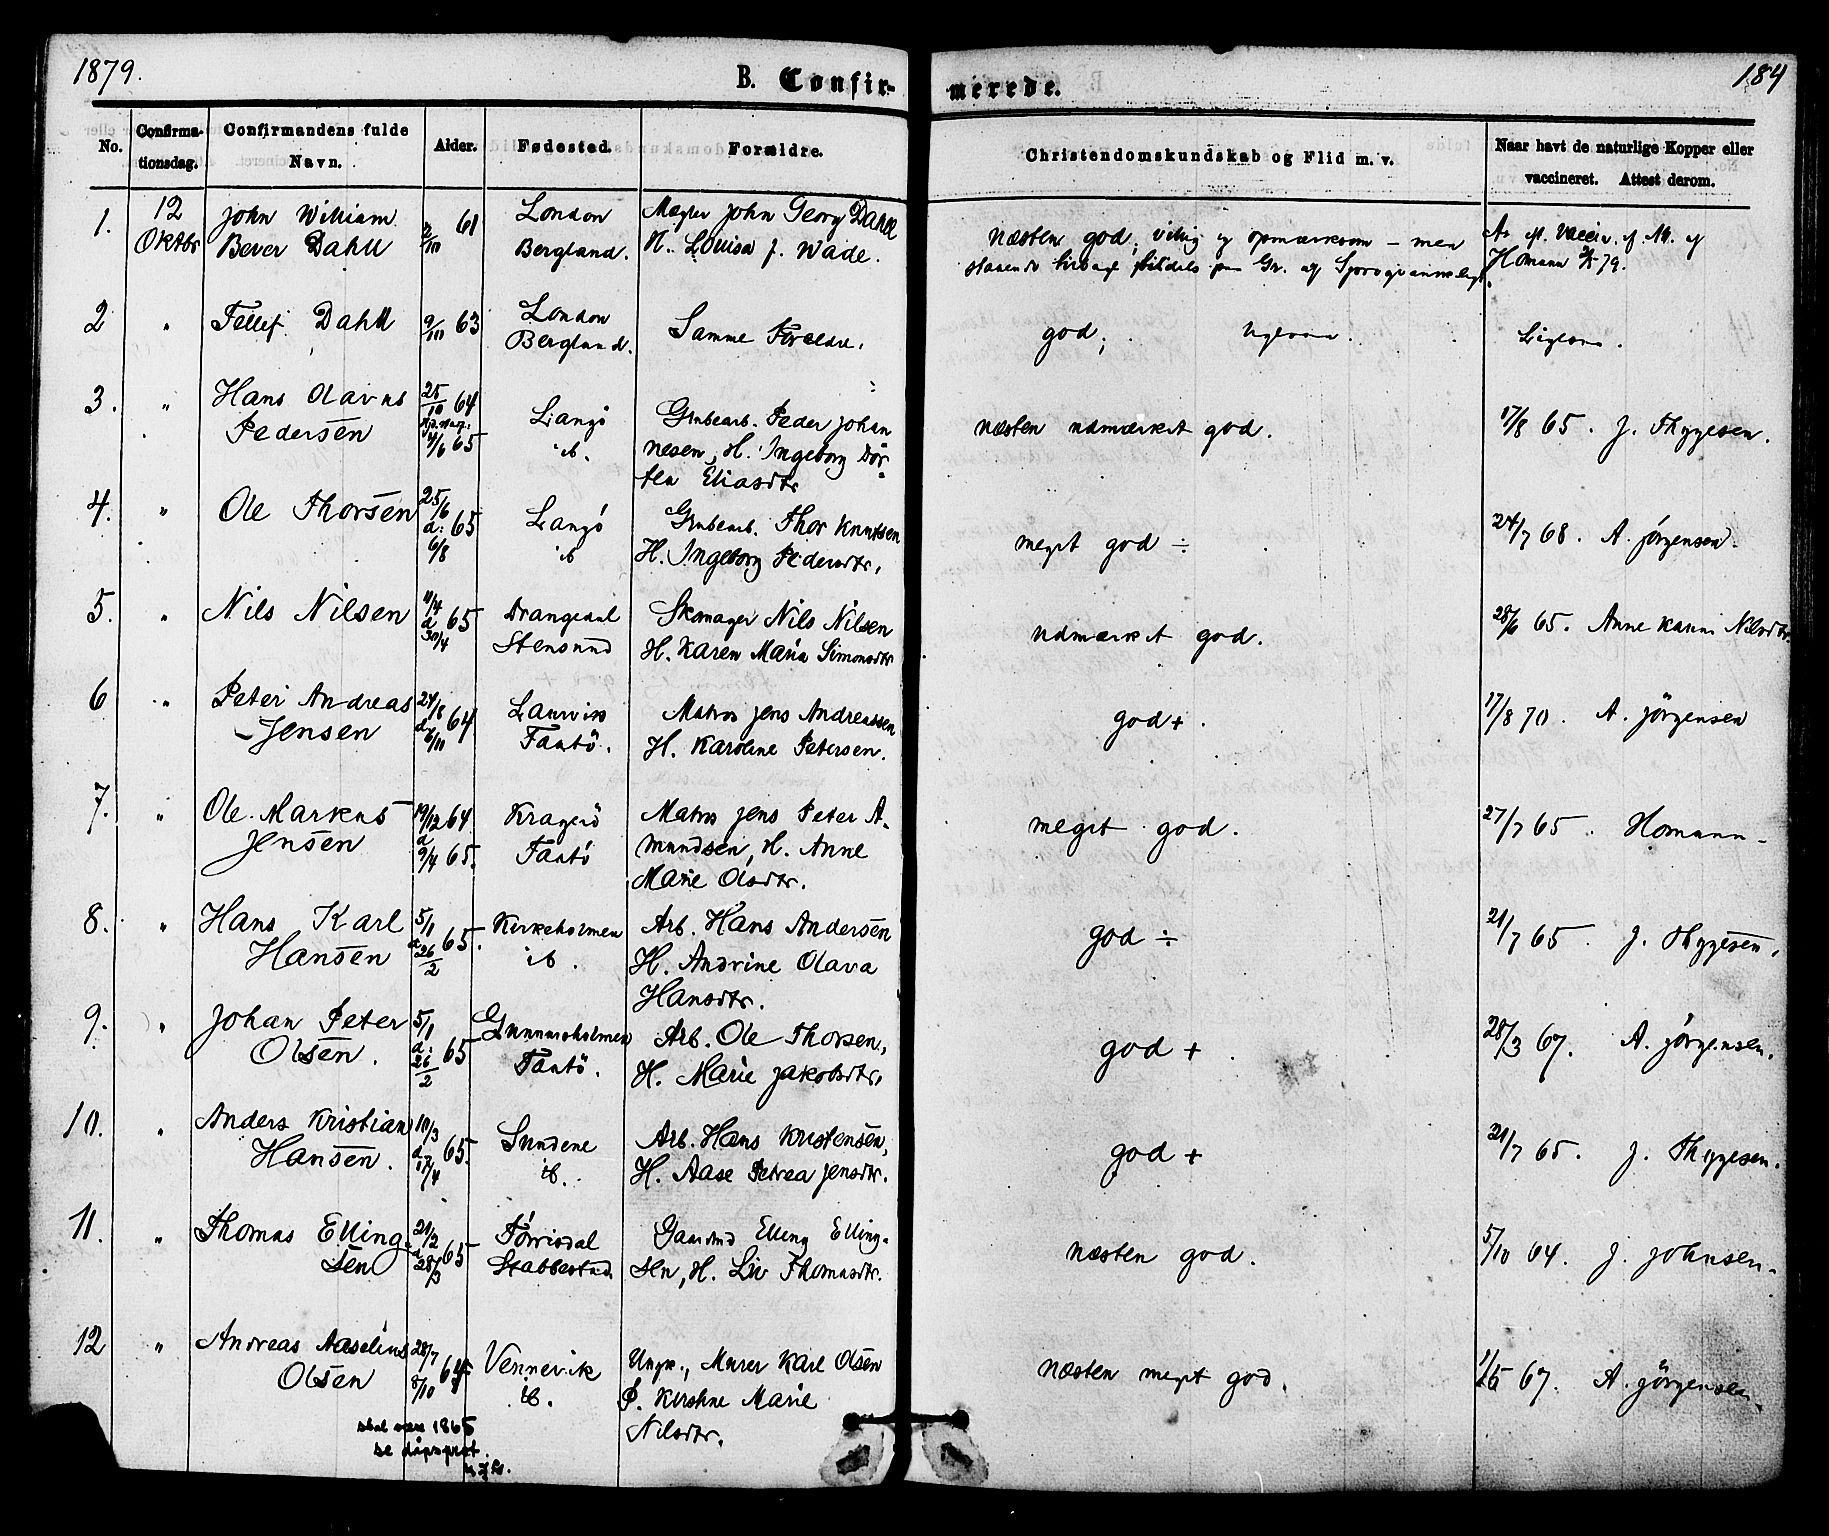 1879.
B. Confir-
merede.
184
No.
Confirma-
tionsdag.
Confirmandens fulde
Navn.
Alder.
Fødested.
Forældre.
Christendomskundskab og Flid m. v.
Naar havt de naturlige Kopper eller
vaccineret. Attest derom.
1. 12 Oktbr
John William
Bever Dahll
2/10 61
London
Bergland.
Mægler John Georg Dahll
H. Louisa J. Wade.
Næsten god; villig og opmærksom – men
staaende tilbage
Homann 79.
2 "
Tellef Dahll
9/10 63
London
Bergland.
Samme Forældre.
god; ligesaa.
Ligesaa.
3. "
Hans Olavus
Pedersen
25/10 64
4/6 65
Langö
ib.
Grubearb. Peder Johan
nesen, H. Ingeborg Dor-
tea Eliasdtr
næsten udmærket god.
17/8 65. J. Thygesen.
4. "
Ole Thorsen
25/6
d. 65
6/8
Langö
ib
Grubearb. Thor Knutsen
H. Ingeborg Pedersdtr.
meget god ÷
24/7 68. A. Jörgensen.
5. "
Nils Nilsen
11/4
d 65
30/4
Drangedal
Stensund
Skomager Nils Nilsen
H. Karen Maria Simonsdtr
udmærket god.
28/6 65. Anne Karine Nilsdtr.
6 "
Peter Andreas
Jensen
24/8
d 64
6/10
Laurvig
Taatö.
Matros Jens Andreassen
H. Karoline Petersen.
god +
17/8 70. A. Jörgensen
7. "
Ole Markus
Jensen
19/12 64
d
9/4 65.
Kragerö
Taatö
Matros Jens Peter A-
mundsen, H. Anne
Marie Olsdtr.
meget god.
27/7 65. Homann
8. "
Hans Karl
Hansen
5/1
d 65.
26/2
Kirkeholmen
ib.
Arb. Hans Andersen
H. Andrine Olava
Hansdtr.
god ÷
21/7 65. J. Thygesen.
9. "
Johan Peter
Olsen.
5/1
d. 65
26/2
Gunnarsholmen
Taatö.
Arb. Ole Thorsen,
H. Marie Jakobsdtr.
god +
28/3 67. A. Jörgensen.
10. "
Anders Kristian
Hansen.
10/3
d 65.
17/4
Sundene
ib.
Arb. Hans Kristensen,
H. Aase Petrea Jensdtr.
god +
21/7 65. J. Thygesen.
11. "
Thomas Elling-
sen
21/2
d 65
28/3
Törrisdal
Stabbestad
Gaardmd Elling Elling-
sen, H. Liv Thomasdtr.
næsten god.
5/10 64. J. Johnsen.
12 "
Andreas Aaselius
Olsen
28/7
64
8/10
Vennevik
ib.
Ungk., Murer Karl Olsen
P. Kirstine Marie
Nilsdtr.
næsten meget god.
1/5 67. A. Jörgensen.
skal være 1865
se dåpsprot.